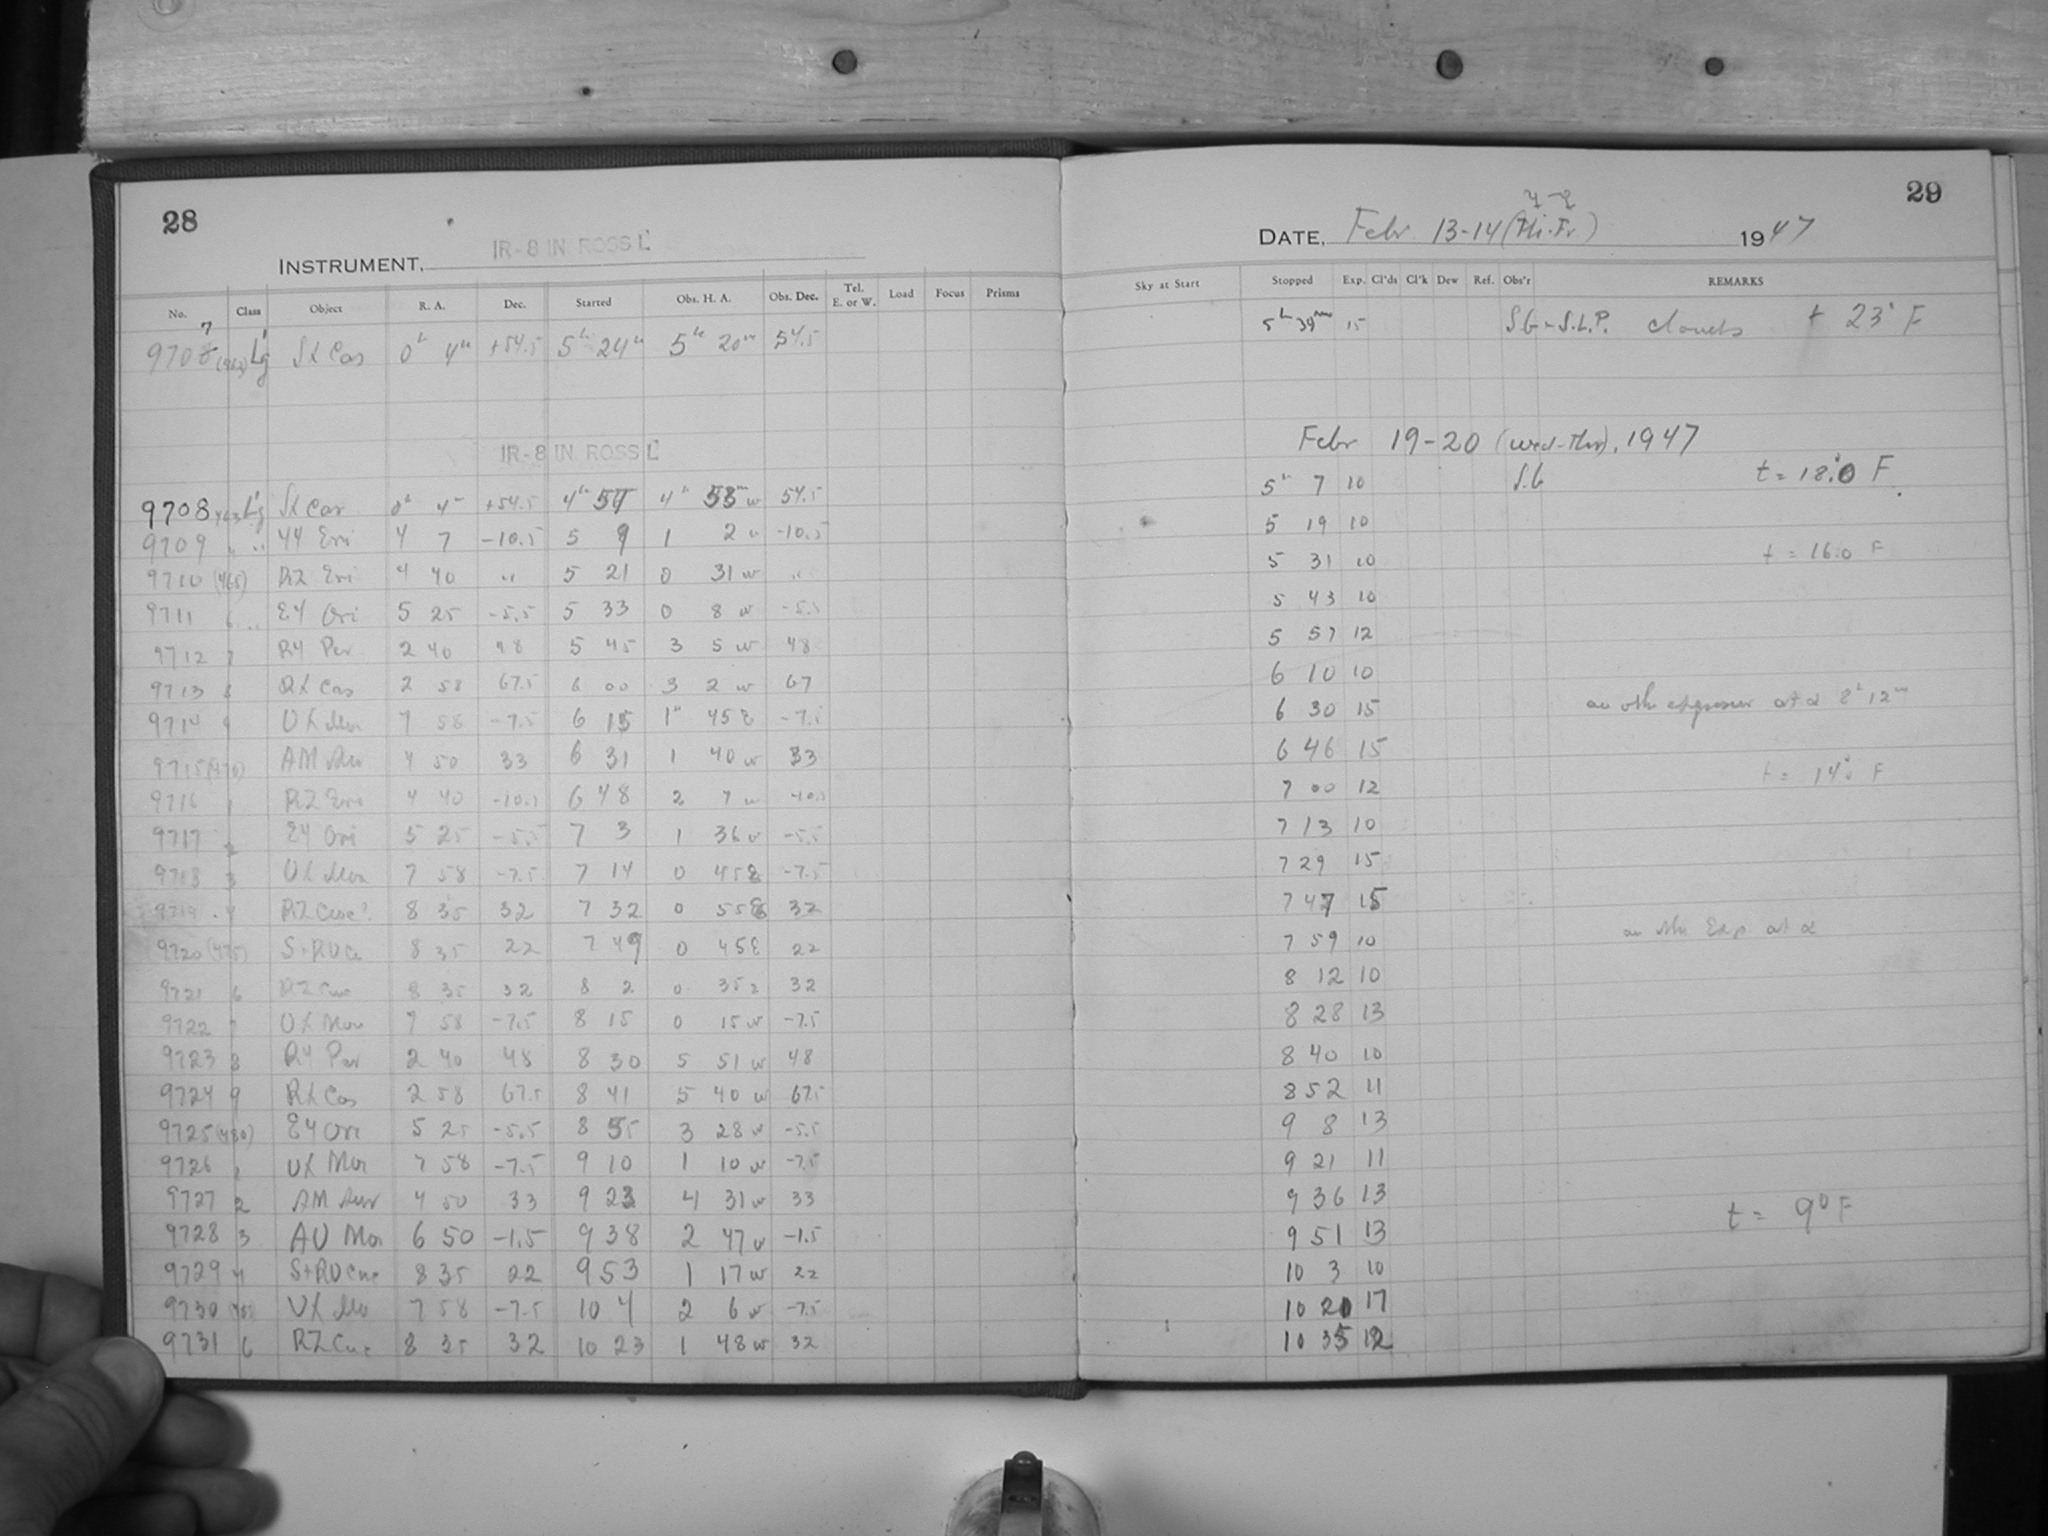 28
INSTRUMENT, IR-8 IN. ROSS L
No. Class Object R. A. Dec. Started Obs. H. A. Obs. Dec. Tel. E. or W. Load Focus Prisms
7
970 SX Cas 0h 4m +54.5 5h 24m 5h 20m 54.5
IR-8 IN. ROSS L
9708 SX Cas 0h 4m +54.5 4h 54 4h 53m w 54.5
9709 YY Eri 4 7 -10.5 5 9 1 2 w -10.5
9710 (465) RZ Eri 4 40 " 5 21 0 31 w "
9711 6 EY Ori 5 25 -5.5 5 33 0 8 w -5.5
9712 7 RY Per 2 40 48 5 45 3 5 w 48
9713 8 RX Cas 2 58 67.5 6 00 3 2 w 67
9714 9 UX Mon 7 58 -7.5 6 15 1h 45 E -7.5
9715 (470) AM Aur 4 50 33 6 31 1 40 w 33
9716 1 RZ Eri 4 40 -10.5 6 48 2 7 w -10.5
9717 2 EY Ori 5 25 -5.5 7 3 1 36 w -5.5
9718 3 UX Mon 7 58 -7.5 7 14 0 45 E -7.5
9719 4 RZ Cnc? 8 35 32 7 32 0 55 E 32
9720 (475) S+RU Cn 8 35 22 7 49 0 45 E 22
9721 6 RZ Cnc 8 35 32 8 2 0 35 E 32
9722 7 UX Mon 7 58 -7.5 8 15 0 15 w -7.5
9723 8 RY Per 2 40 48 8 30 5 51 w 48
9724 9 RX Cas 2 58 67.5 8 41 5 40 w 67.5
9725 (480) EY Ori 5 25 -5.5 8 55 3 28 w -5.5
9726 1 UX Mon 7 58 -7.5 9 10 1 10 w -7.5
9727 2 AM Aur 4 50 33 9 23 4 31 w 33
9728 3 AU Mon 6 50 -1.5 9 38 2 47 w -1.5
9729 4 S+RU Cnc 8 35 22 9 53 1 17 w 22
9730 UX Mo 7 58 -7.5 10 4 2 6 w -7.5
9731 6 RZ Cnc 8 35 32 10 23 1 48 w 32
29
DATE, Febr. 13-14 (Th.-Fr.) 1947
Sky at Start Stopped Exp. Cl'ds Cl'k Dew Ref. Obs'r REMARKS
5h 39m 15 S.G-S.L.P. clouds + 23° F
Febr 19-20 (Wed-Thr), 1947
5h 7 10 S.G t = 18.0 F.
5 19 10
5 31 10 t = 16.0 F
5 43 10
5 57 12
6 10 10
6 30 15 at α 8h 12m
6 46 15
7 00 12 t = 14° F
7 13 10
7 29 15
7 47 15
7 59 10 Exp at α
8 12 10
8 28 13
8 40 10
8 52 11
9 8 13
9 21 11
9 36 13
9 51 13 t = 9° F
10 3 10
10 21 17
10 35 12